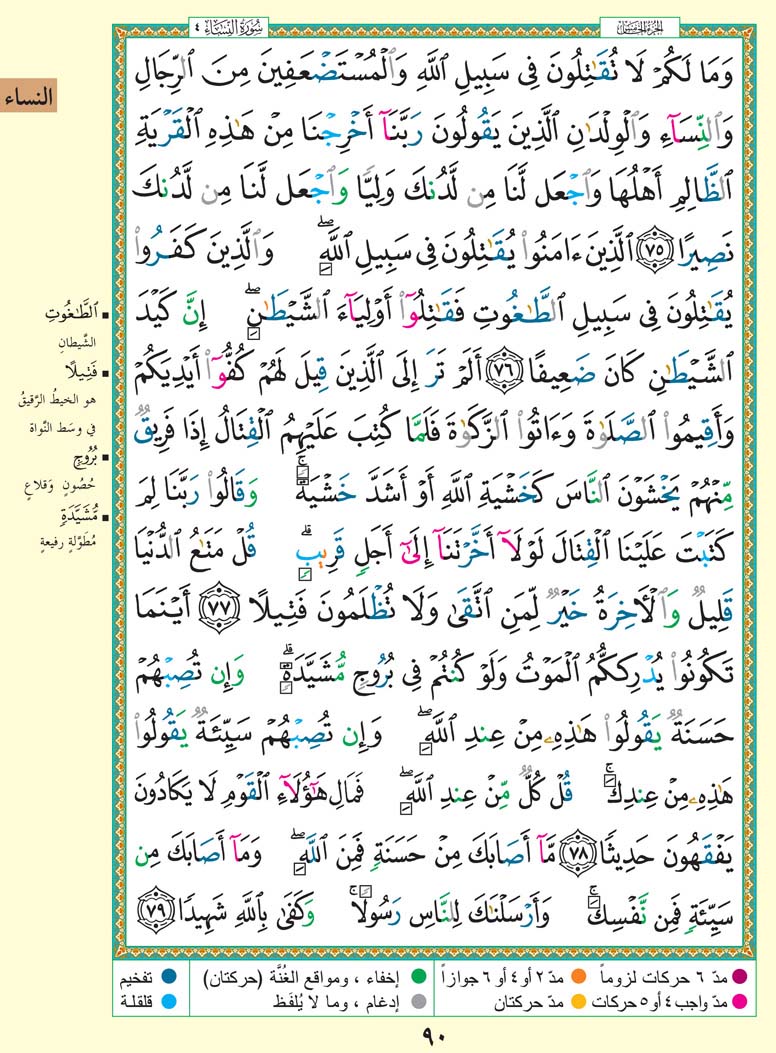 الجزء الخامس
سورة النساء ٤
النساء
وَمَا لَكُمْ لَا تُقَٰتِلُونَ فِى سَبِيلِ ٱللَّهِ وَٱلْمُسْتَضْعَفِينَ مِنَ ٱلرِّجَالِ
وَٱلنِّسَآءِ وَٱلْوِلْدَٰنِ ٱلَّذِينَ يَقُولُونَ رَبَّنَآ أَخْرِجْنَا مِنْ هَٰذِهِ ٱلْقَرْيَةِ
ٱلظَّالِمِ أَهْلُهَا وَٱجْعَل لَّنَا مِن لَّدُنكَ وَلِيًّا وَٱجْعَل لَّنَا مِن لَّدُنكَ
نَصِيرًا ٧٥ ٱلَّذِينَ ءَامَنُوا۟ يُقَٰتِلُونَ فِى سَبِيلِ ٱللَّهِ ۖ وَٱلَّذِينَ كَفَرُوا۟
يُقَٰتِلُونَ فِى سَبِيلِ ٱلطَّٰغُوتِ فَقَٰتِلُوٓا۟ أَوْلِيَآءَ ٱلشَّيْطَٰنِ ۖ إِنَّ كَيْدَ
ٱلشَّيْطَٰنِ كَانَ ضَعِيفًا ٧٦ أَلَمْ تَرَ إِلَى ٱلَّذِينَ قِيلَ لَهُمْ كُفُّوٓا۟ أَيْدِيَكُمْ
وَأَقِيمُوا۟ ٱلصَّلَوٰةَ وَءَاتُوا۟ ٱلزَّكَوٰةَ فَلَمَّا كُتِبَ عَلَيْهِمُ ٱلْقِتَالُ إِذَا فَرِيقٌ
مِّنْهُمْ يَخْشَوْنَ ٱلنَّاسَ كَخَشْيَةِ ٱللَّهِ أَوْ أَشَدَّ خَشْيَةً ۚ وَقَالُوا۟ رَبَّنَا لِمَ
كَتَبْتَ عَلَيْنَا ٱلْقِتَالَ لَوْلَآ أَخَّرْتَنَآ إِلَىٰٓ أَجَلٍ قَرِيبٍ ۗ قُلْ مَتَٰعُ ٱلدُّنْيَا
قَلِيلٌ وَٱلْءَاخِرَةُ خَيْرٌ لِّمَنِ ٱتَّقَىٰ وَلَا تُظْلَمُونَ فَتِيلًا ٧٧ أَيْنَمَا
تَكُونُوا۟ يُدْرِككُّمُ ٱلْمَوْتُ وَلَوْ كُنتُمْ فِى بُرُوجٍ مُّشَيَّدَةٍ ۗ وَإِن تُصِبْهُمْ
حَسَنَةٌ يَقُولُوا۟ هَٰذِهِۦ مِنْ عِندِ ٱللَّهِ ۖ وَإِن تُصِبْهُمْ سَيِّئَةٌ يَقُولُوا۟
هَٰذِهِۦ مِنْ عِندِكَ ۚ قُلْ كُلٌّ مِّنْ عِندِ ٱللَّهِ ۖ فَمَالِ هَٰٓؤُلَآءِ ٱلْقَوْمِ لَا يَكَادُونَ
يَفْقَهُونَ حَدِيثًا ٧٨ مَّآ أَصَابَكَ مِنْ حَسَنَةٍ فَمِنَ ٱللَّهِ ۖ وَمَآ أَصَابَكَ مِن
سَيِّئَةٍ فَمِن نَّفْسِكَ ۚ وَأَرْسَلْنَٰكَ لِلنَّاسِ رَسُولًا ۚ وَكَفَىٰ بِٱللَّهِ شَهِيدًا ٧٩
ٱلطَّٰغُوتِ
الشَّيطانِ
فَتِيلًا
هو الخيطُ الرَّقيقُ
في وسَط النَّواة
بُرُوجٍ
حُصُونٍ وَقلاعٍ
مُّشَيَّدَةٍ
مُطَوَّلةٍ رفيعةٍ
مدّ ٦ حركات لزوماً
مدّ ٢ أو ٤ أو ٦ جوازاً
إخفاء ، ومواقع الغُنَّة (حركتان)
تفخيم
مدّ واجب ٤ أو ٥ حركات
مدّ حركتان
إدغام ، وما لا يُلفَظ
قلقلة
٩٠